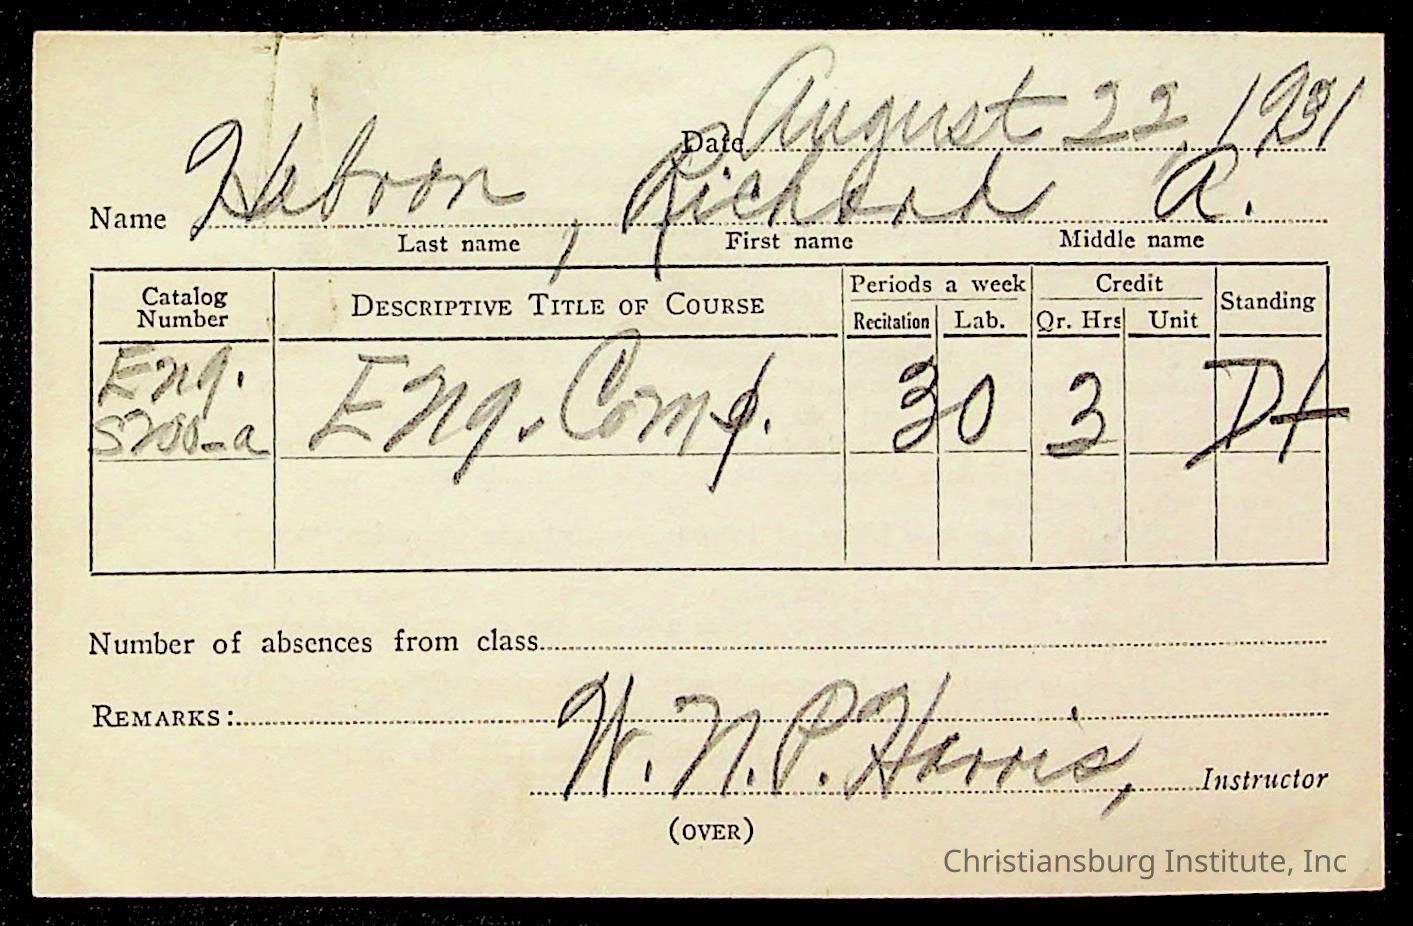 Date August 22, 1931
Name Hebron, Richard A.
Last name First name Middle name
Catalog Number DESCRIPTIVE TITLE OF COURSE Periods a week Credit Standing
Recitation Lab. Qr. Hrs Unit
Eng. S200-a Eng. Comp. 3 0 3 D+
Number of absences from class
REMARKS:
W. N. P. Harris, Instructor
(OVER)
Christiansburg Institute, Inc